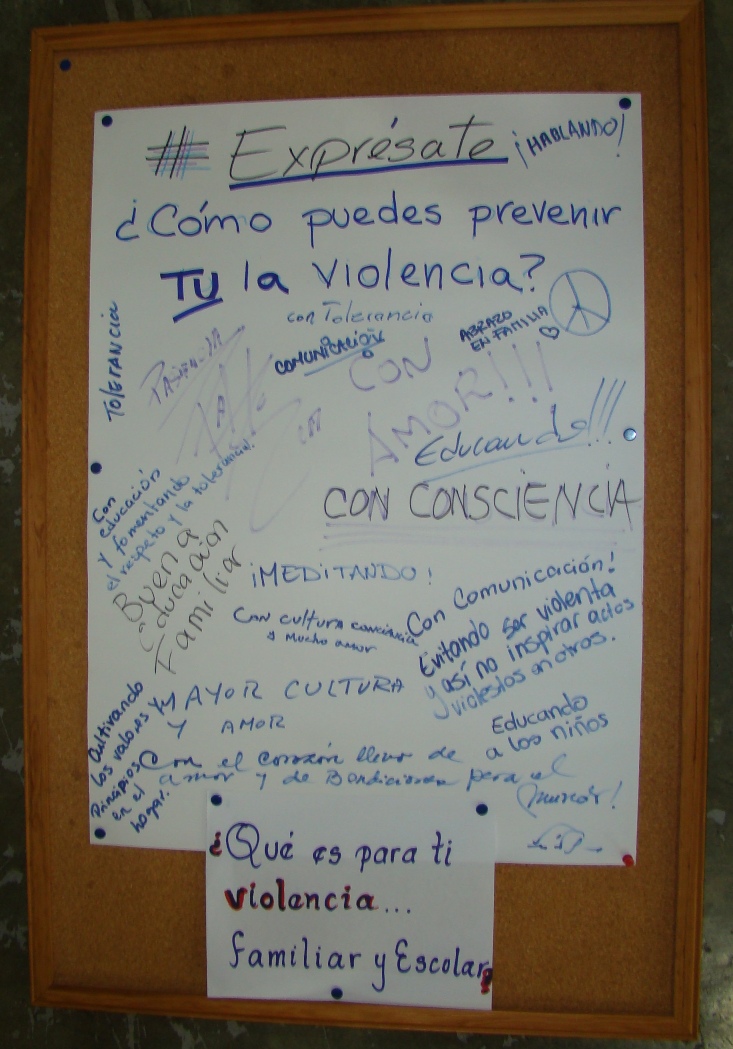 # Exprésate
¡HABLANDO!
¿Cómo puedes prevenir
TU la violencia?
con Tolerancia
COMUNICACIÓN
ABRAZO
EN FAMILIA
Tolerancia
CON
AMOR!!!
Educando!!!
CON CONSCIENCIA
Con
educación
y fomentando
el respeto y la tolerancia!
Buena
Educación
Familiar
¡MEDITANDO!
Con cultura conciencia
y mucho amor
Con Comunicación!
Evitando ser violenta
y así no inspirar actos
violestos en otros.
MAYOR CULTURA
Y AMOR
Educando
a los niños
Cultivando
los valores y
Principios
en el
hogar.
Con el corazón lleno de
amor y de Bendiciones para el
mundo!
¿Qué es para ti
violencia...
familiar y Escolar?